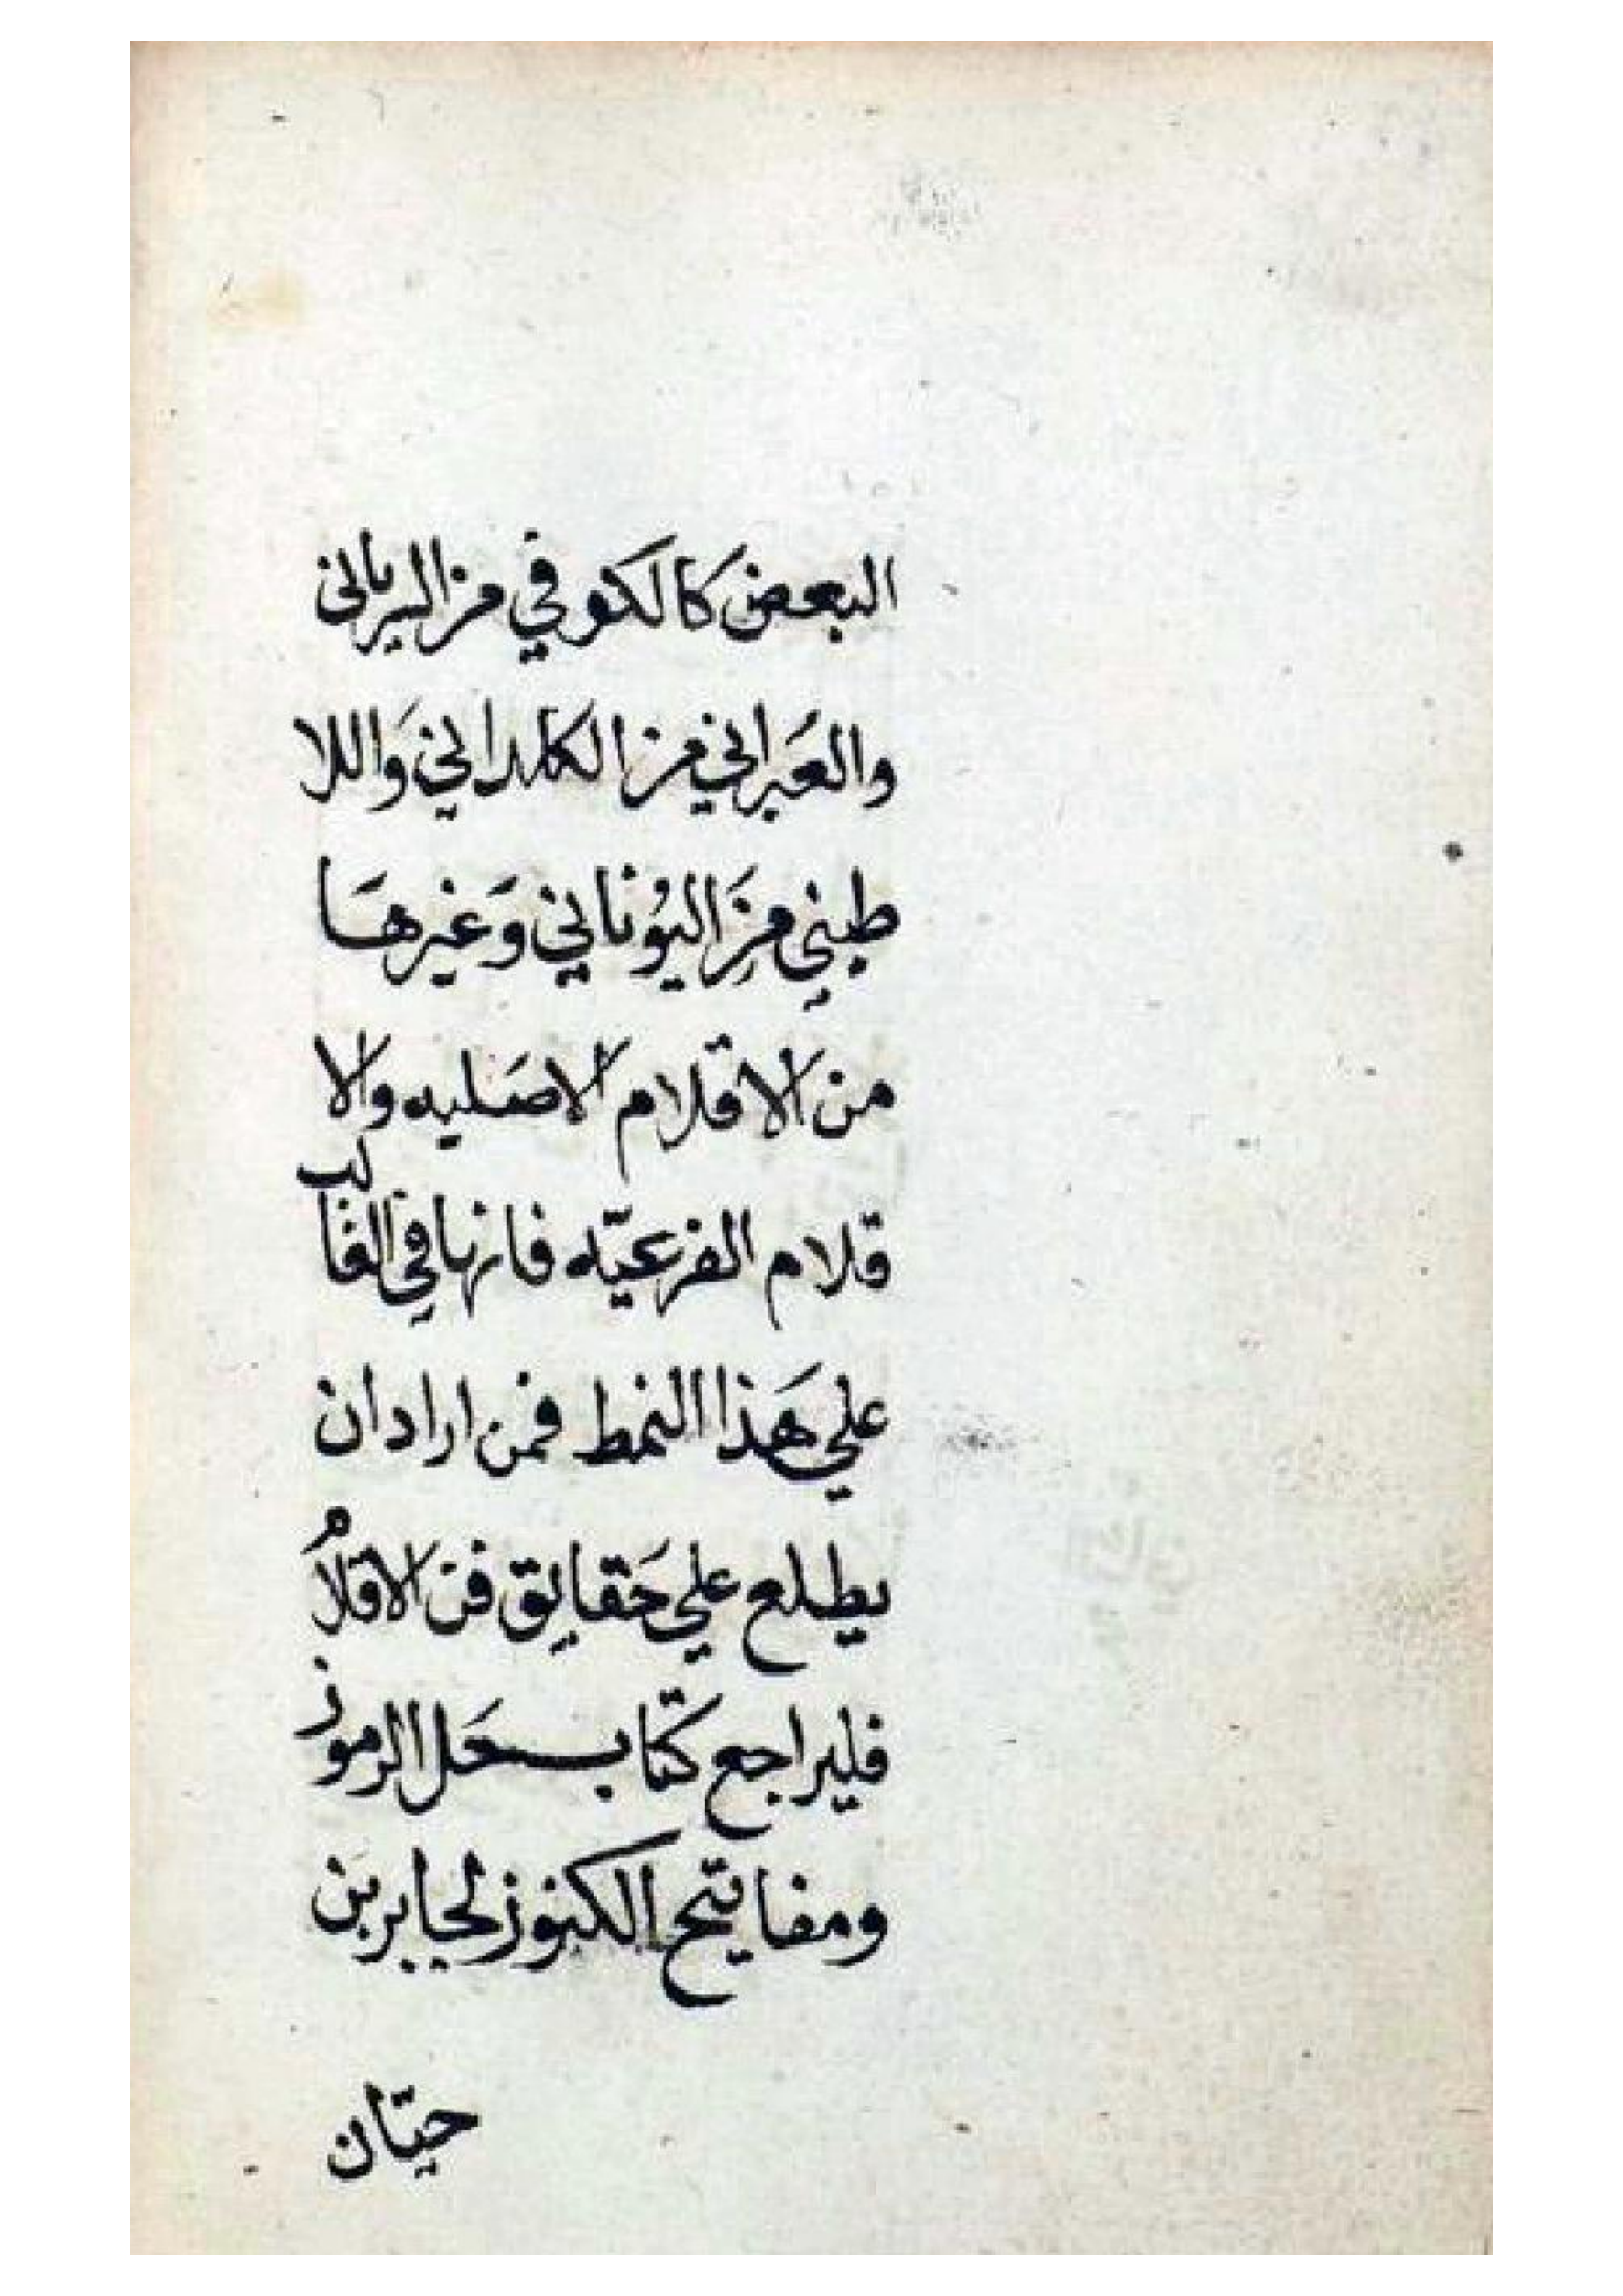 البعض كالكوفي من السرياني
والعَبراني من الكلداني وَاللا
طيني مِنَ اليُوناني وَغيرهَا
من الاقلام الاصَليه والا
قلام الفرعيّه فانها في الغالب
علي هَذا النمط فمن اراد ان
يطلع علي حَقايق فن الاقلامُ
فليراجع كتاب حَل الرموز
ومفاتيح الكنوز لجابر بن
حيّان